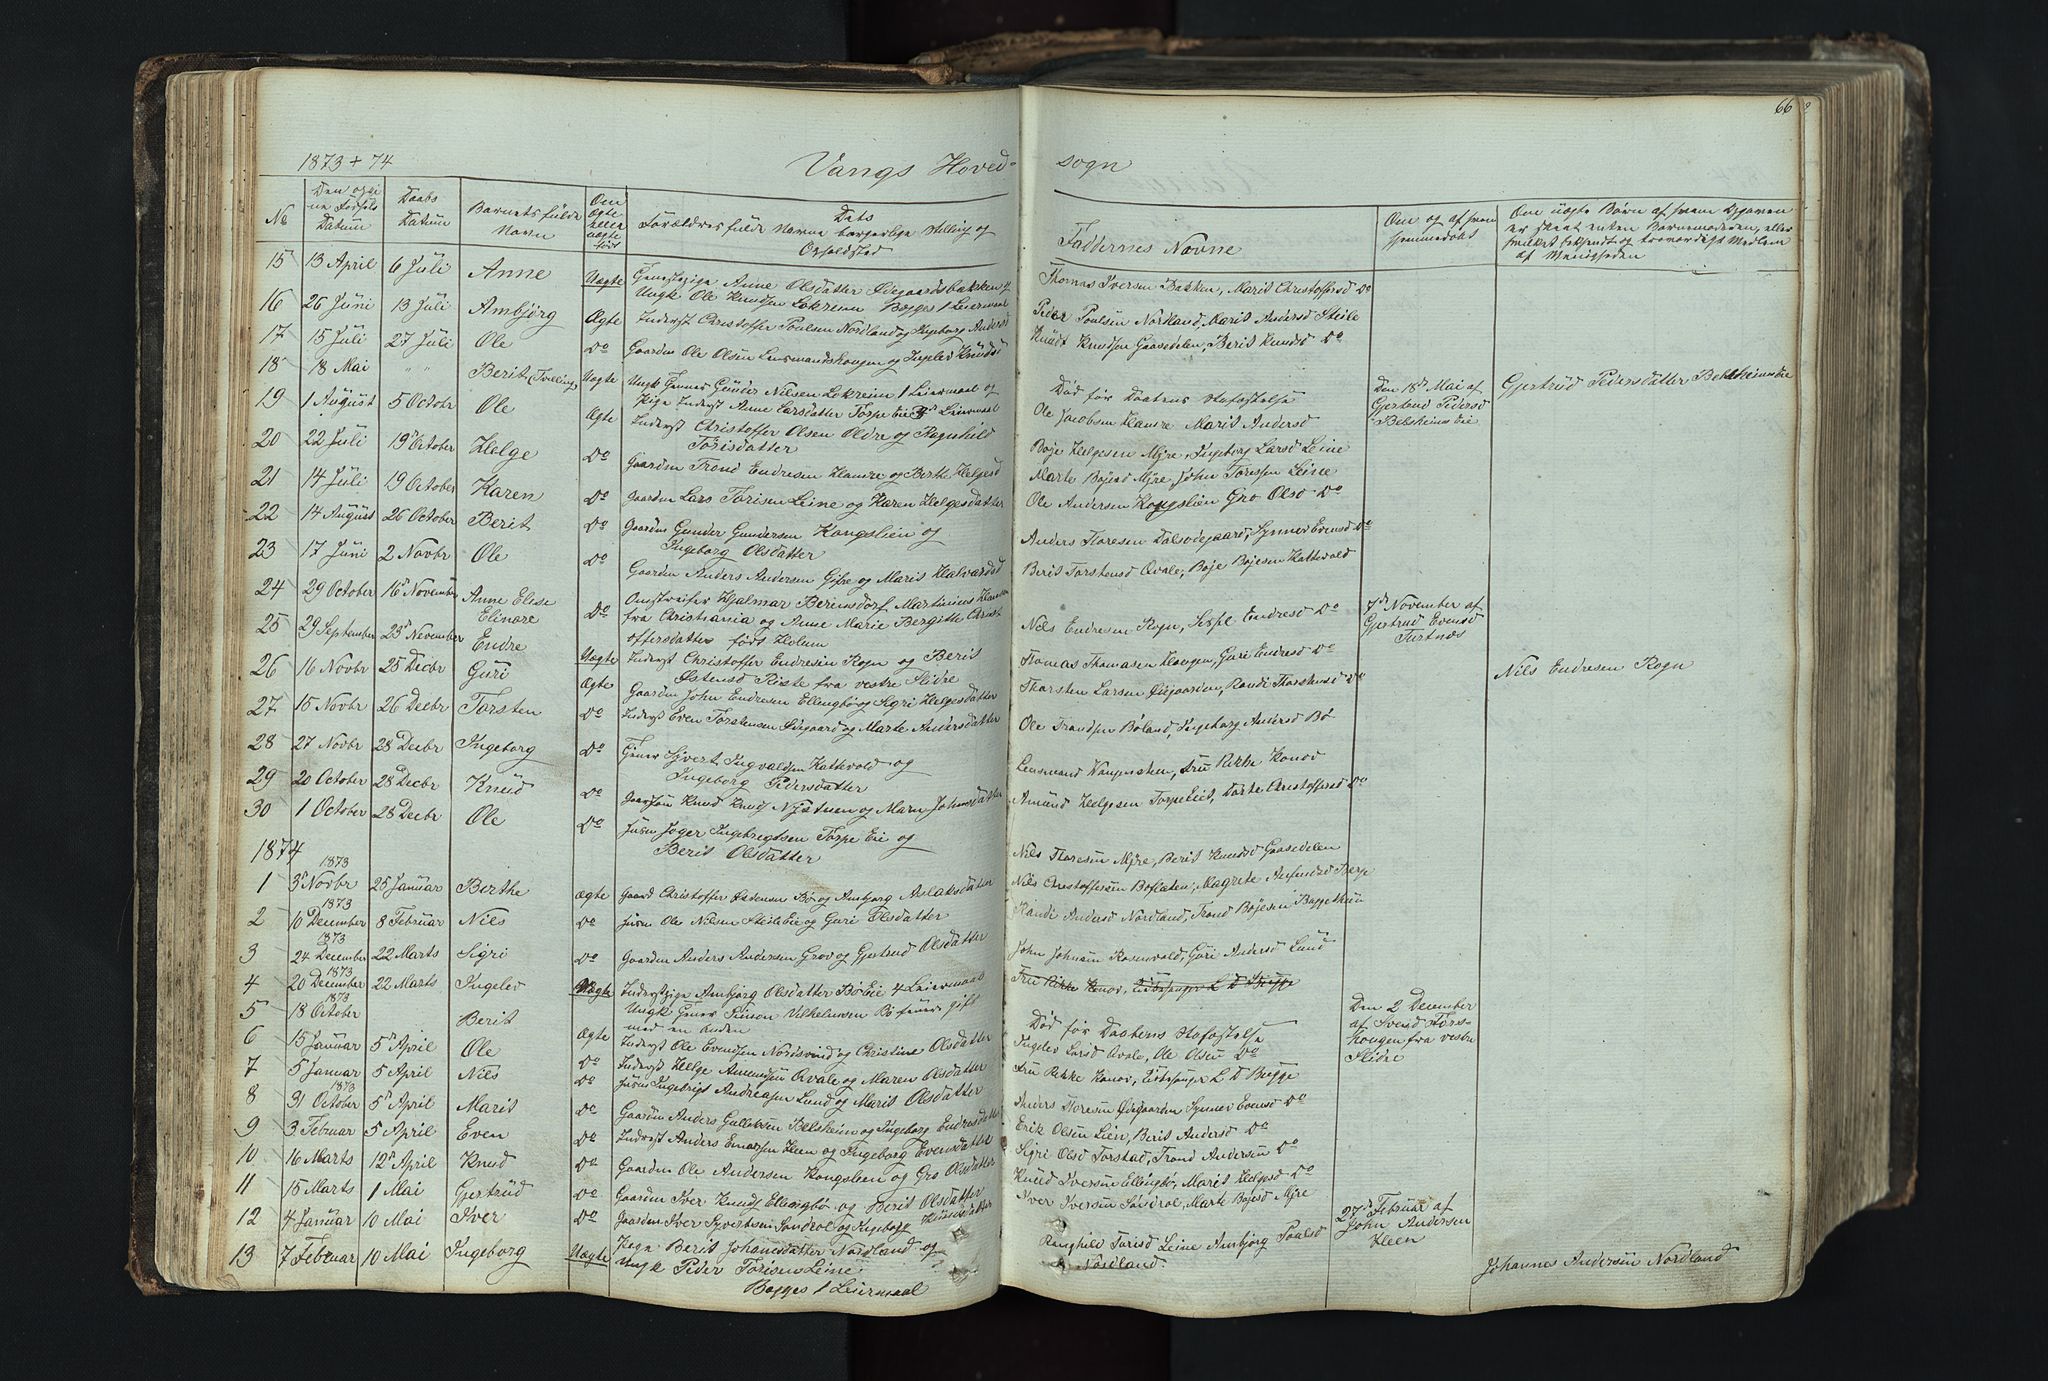 66
1873 + 74
Vangs Hoved-
sogn
No
Datum
Daabs
Datum
Barnets fulde
Navn
Om
ægte
eller
uægte
født
Forældres fulde Navne borgerlige Stilling og
Opholdsted
Faddernes Navne
Om og af hvem
hjemmedøbt
15 13 April 6 Juli Anne Uægte Anne Olsdatter Øigaardsbakken
Ungk Ole Knudsen Lokreim Bægges 1 Leiermaal
Thomas Iversen Bakken, Marit Christoffersd Do
16 26 Juni 13 Juli Ambjørg Ægte Inderst Christoffer Poulsen Nordland og Ingeborg Andersd
Peder Poulsen Nordland, Marit Andersd Steile
17 15 Juli 27 Juli Ole Do Gaardm Ole Olsen Lensmandshougen og Ingeleb Knudsd
Knudt Knudsen Gaasedelen, Berit Knudsd Do
18 18 Mai " " Berit (Tvilling) Uægte Ungk Gunder Nilsen Lokreim 1 Leiermaal og
Pige Inderst Anne Larsdatter Torpe Eie Leiermaal
Død før Daabens Stadfæstelse
Den 18de Mai af
Gjertrud Pedersd
Belsheimseie
Gjertrud Pedersdatter Belsheimseie
19 1 August 5 Octobr Ole Ægte Inderst Christoffer Olsen Oldre og Ragnhild
Torisdatter
Ole Jacobsen Hamre Marit Andersd
20 22 Juli 19de October Helge Do Gaardm Trond Endresen Hamre og Berthe Helgesd
Bøje Helgesen Mjre, Ingeborg Larsd Leine
21 14 Juli 19 October Karen Do Gaardm Lars Torisen Leine og Karen Helgesdatter
Marte Bøjesd Mjre, John Toresen Leine
22 14 August 26 October Berit Do Gaardm Gunder Gundersen Kongslien og
Ingeborg Olsdatter
Ole Andersen Kongslien Gro Olsd Do
23 17 Juni 2 Novbr Ole Do Gaardm Anders Andersen Gifre og Marit Halvardsd
Anders Thoresen Dalsødegaard, Synnev Evensd Do
Berit Torstensd Qvale, Bøje Bøjesen Kattevold
24 29 October 16de November Anne Elise
Elinore
Do Omstreifer Hjalmar Berinsdorf Martinius Hansen
fra Christiania og Anne Marie Bergitte Christ
offersdatter født Holum
7de November af
Gjertrud Evensd
25 29 September 23de November Endre Uægte Inderst Christoffer Endresen Rogn og Berit
Østensd Riste fra vestre Slidre
Nils Endresen Rogn, Endresd Do
Nils Endresen Rogn
26 16 Novbr 25 Decbr Guri Ægte Gaardm John Endresen Ellingbø og Sigri Helgesdatter
Thomas Thomasen Hougen, Guri Endresd Do
27 15 Novbr 26 Decbr Torsten Do Inderst Even Torstensen Øigaard og Marte Andersdatter
Thorsten Larsen Øigaarden, Randi Thorstensd Do
28 27 Novbr 28 Decbr Ingeborg Do Sjvert Ingvaldsen Kattevold og
Ingeborg Pedersdatter
Ole Trondsen Bøland, Ingeborg Andersd Bø
29 20 October 28 Decbr Knud Do Knud Knuds Nystuen og Marn Johansdatter
Lensmand Wangensteen, Fru Rikke Konow
30 1 October 28 Decbr Ole Do Ingebregtsen Torpe Eie og
Berit Olsdatter
Amund Helgesen Torpe Eie, Dorte Christoffersd Do
1874
1873
1 3de Novbr 25 Januar Berthe Ægte Gaard Christoffer Østensen Bø og Ambjørg Aslaksdatter
Nils Thoresen Mjre, Berit Knudsd Gaasedelen
1873
2 10 December 8 Februar Nils Do Ole Nilsen Steile Eie og Guri Elsdatter
Nils Christoffersen Bøflaten, Magrete
Randi Andersd Nordland, Trond Bøjesen Baggethun
1873
3 24 December 22 Marts Sigri Do Gaardm Anders Andersen Grov og Gjertrud Olsdatter
John Johnsen Rosenvold, Guri Andersd Lund
1873
4 20 December 22 Marts Ingeleb Uægte Inderstpige Ambjørg Olsdatter Bø Eie 4 Leiermaal
Ungk Simon Vilhelmsen Bø gift
med en anden
Fru Rikke Konow, L D Bugge
1873
5 18 October Berit
Død før Daabens Stadfæstelse
Den 2 December
af Svend Fors-
hougen fra vestre
Slidre
6 15 Januar 5te April Ole Ægte Inderst Ole Evendsen Nordsveind og Christine Olsdatter
Ingeleb Larsd Qvale, Ole Olsen Do
7 5 Januar 5 April Nils Do Inderst Helge Amundsen Qvale og Maren Olsdatter
Fru Rikke Konow, L D Bugge
1873
8 31 October 5te April Marit Do Ingebrigt Andreasen Lund og Marit Olsdatter
Anders Thoresen Øigaarden Synnev Evensd Do
9 3 Februar 5 April Even Do Gaardm Anders Gulleksen Belsheim og Ingeborg Endresdatter
Erik Olsen Lien, Berit Andersd Do
10 16 Marts 12te April Knud Do Inderst Anders Heen og Ingeborg Evensdatter
Sigri Olsd Torstad, Trond Andersen Do
11 15 Marts 1 Mai Gjertrud Do Gaardm Ole Andersen Kongslien og Gro Olsdatter
Knud Iversen Ellingbø, Marit Helgesd Do
12 4 Januar 10 Mai Iver Do Gaardm Iver Knuds Ellingbø og Berit Olsdatter
Gaardm Iver Syvertsen Søndrol og Ingeborg Knudsdatter
Iver Iversen Søndrol, Marte Bøjesd Mjre
13 7 Februar 10 Mai Ingeborg Uægte Pige Berit Johansdatter Nordland og
Ungk Peder Torisen Leine
Bægges 1 Leiermaal
Ranghild Torisd Leine Ambjørg Poulsd
Nordland
27de Februar af
John Andersen
Heen
Johannes Andersen Nordland